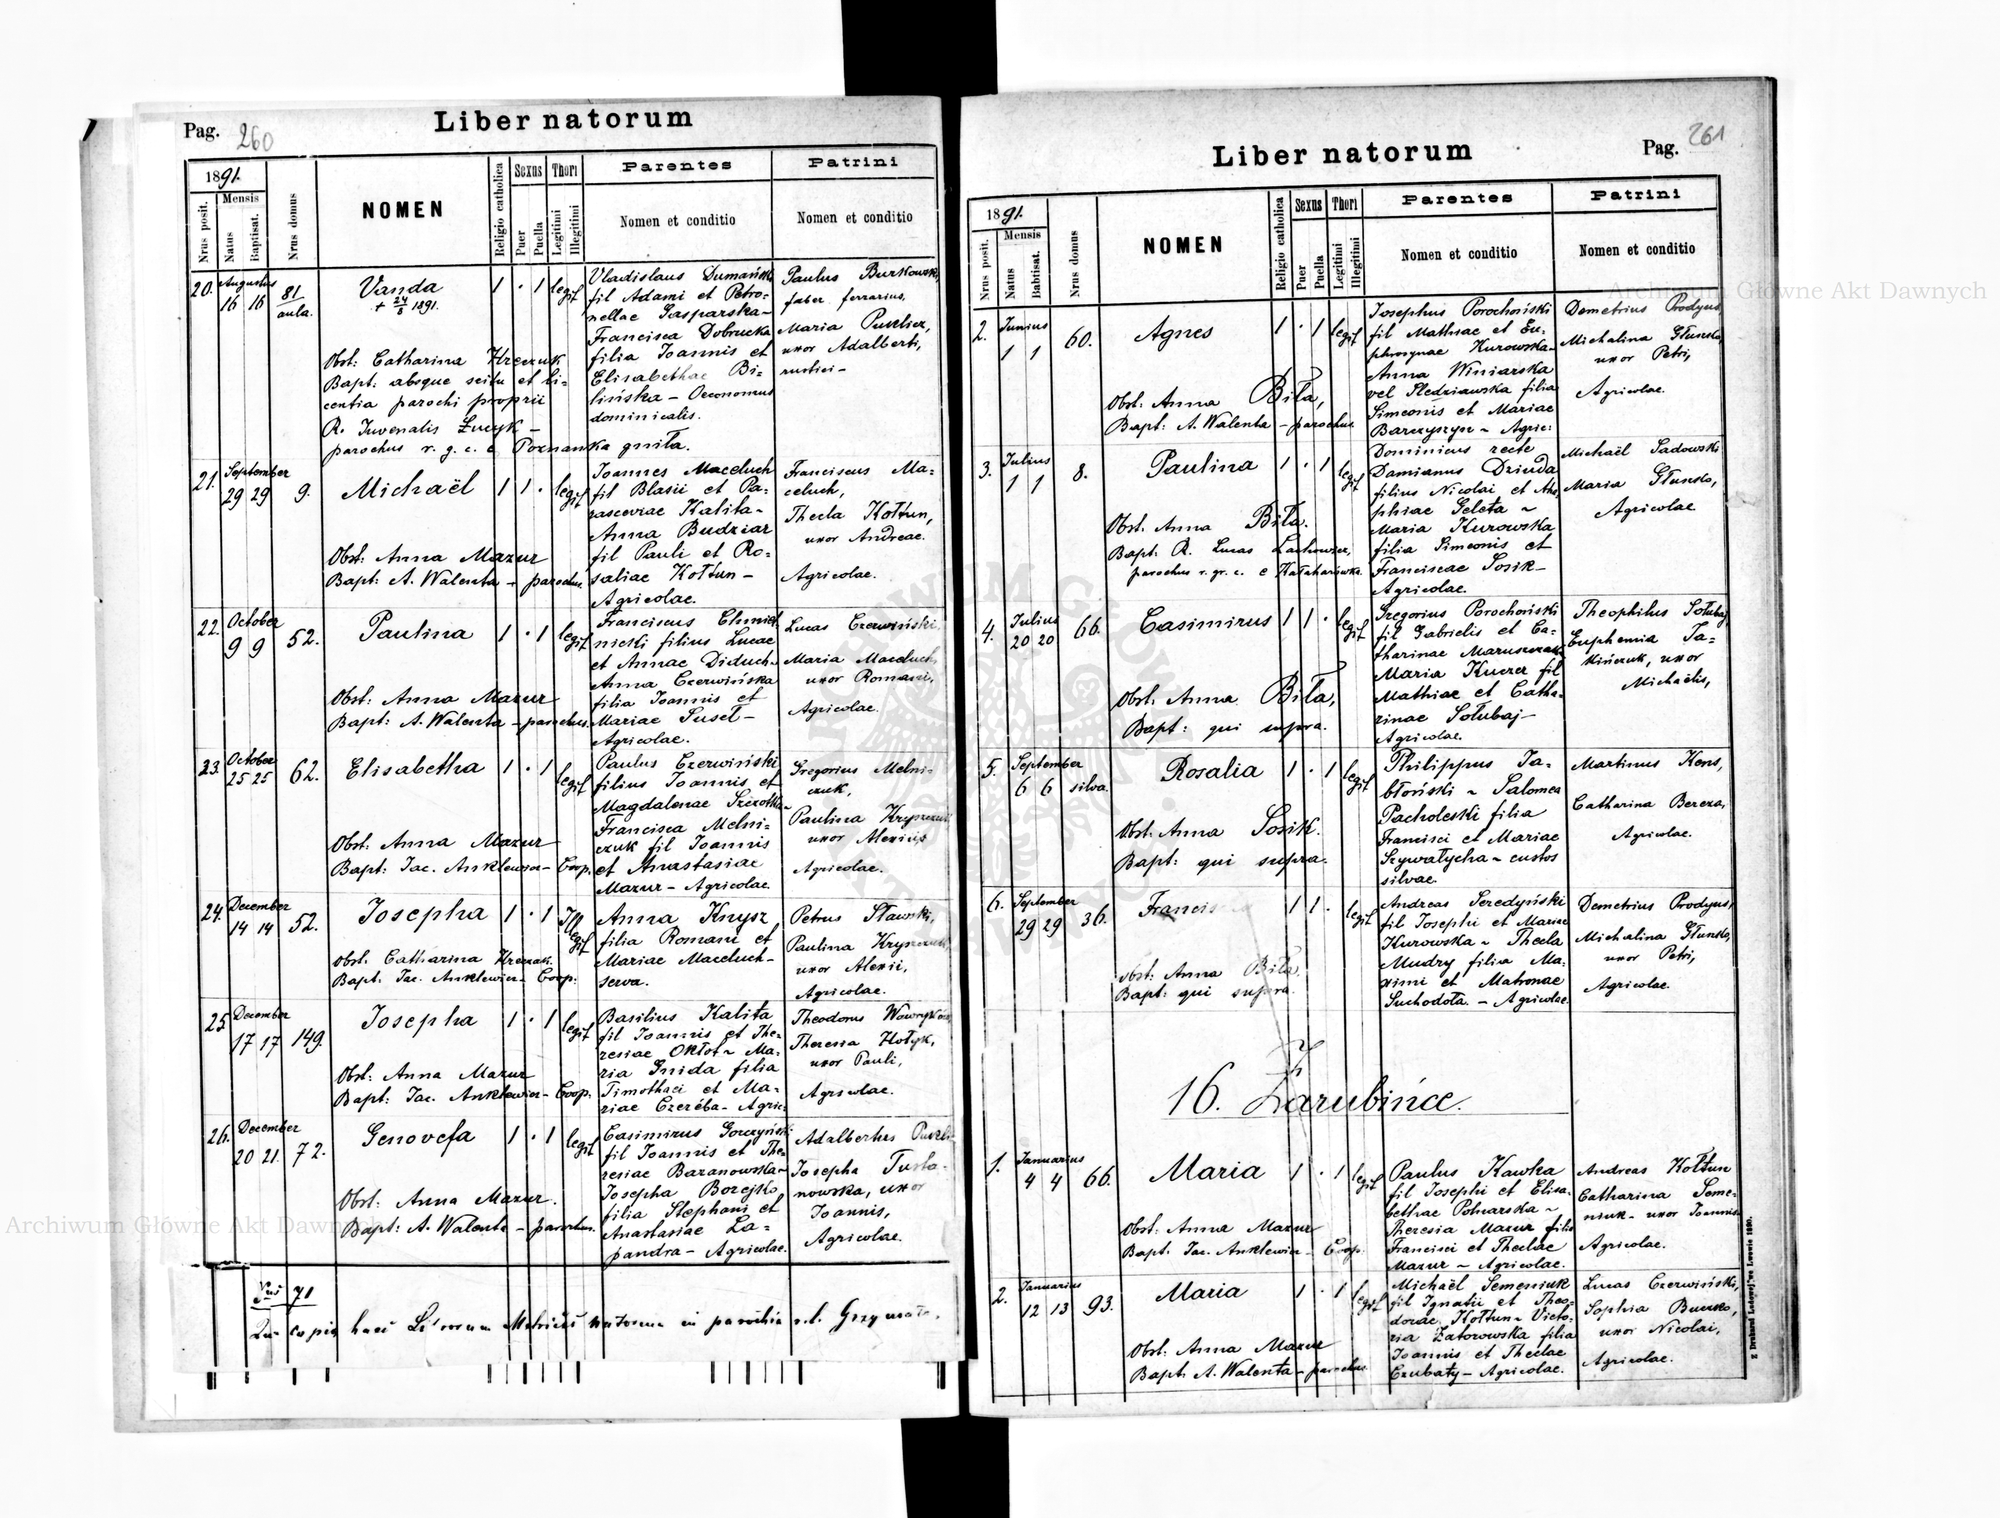 Pag. 260
Liber natorum
1891.
Nrus posit.
Mensis
Natus
Baptisat.
Nrus domus
NOMEN
Religio catholica
Sexus
Puer
Puella
Thori
Legitimi
Illegitimi
Parentes
Nomen et conditio
Patrini
Nomen et conditio
20. Augustus 16 16 81 aula.
Vanda
+ 24/8 1891.
1 · 1 legit
Obst: Catharina Hreczuk
Bapt: absque scitu et li-
centia parochi proprii
R. Juvenalis Łucyk –
parochus r. g. c. e Poznanka gniła.
Vladislaus Dumański
fil Adami et Petro-
nellae Gasparska –
Francisca Dobrucka
filia Joannis et
Elisabethae Bi-
lińska – Oeconomus
dominicalis.
Paulus Burkowski,
faber ferrarius,
Maria Puzlicz,
uxor Adalberti,
rustici –
21. September 29 29 9.
Michaël
1 1 · legit
Obst: Anna Mazur
Bapt: A. Walenta – parochus.
Joannes Maceluch
fil Blasii et Pa-
rasceviae Kalita –
Anna Budziar
fil Pauli et Ro-
saliae Kołtun –
Agricolae.
Franciscus Ma-
celuch,
Thecla Kołtun,
uxor Andreae.
Agricolae.
22. October 9 9 52.
Paulina
1 · 1 legit
Obst: Anna Mazur
Bapt: A. Walenta – parochus.
Franciscus Chmiel-
nicki filius Lucae
et Annae Diduch –
Anna Czerwińska
filia Joannis et
Mariae Suseł –
Agricolae.
Lucas Czerwiński
Maria Maceluch,
uxor Romani,
Agricolae.
23. October 25 25 62.
Elisabetha
1 · 1 legit
Obst: Anna Mazur
Bapt: Jac. Anklewicz – Coop.
Paulus Czerwiński
filius Joannis et
Magdalenae Szczotka –
Francisca Melni-
czuk fil Joannis
et Anastasiae
Mazur – Agricolae.
Gregorius Melni-
czuk,
Paulina Kryszczuk
uxor Alexius
Agricolae.
24. December 14 14 52.
Josepha
1 · 1 Illegit
Obst. Catharina Hreczuk.
Bapt: Jac. Anklewicz – Coop.
Anna Knysz
filia Romani et
Mariae Maceluch –
serva.
Petrus Sławski,
Paulina Kryszczuk,
uxor Alexii,
Agricolae.
25. December 17 17 149
Josepha
1 · 1 legit
Obst: Anna Mazur
Bapt: Jac. Anklewicz – Coop.
Basilius Kalita
fil Joannis et The-
resiae Okłot – Ma-
ria Gnida filia
Timothaei et Ma-
riae Czeréba – Agric:
Theodorus
Theresia Hołyk,
uxor Pauli,
Agricolae.
26. December 20 21 72.
Genovefa
1 · 1 legit
Obst: Anna Mazur.
Bapt: A. Walenta – parochus.
Casimirus Gorczyński
fil Joannis et The-
resiae Baranowska –
Josepha Bozejko
filia Stephani et
Anastasiae La-
pandra – Agricolae.
Adalbertus Puzlicz
Josepha Tusta-
nowska, uxor
Joannis,
Agricolae.
71
copia haec Librorum Metrices natorum in parochia r. l. Grzymałow.
Pag. 261
Liber natorum
1891.
Nrus posit.
Mensis
Natus
Babtisat.
Nrus domus
NOMEN
Religio catholica
Sexus
Puer
Puella
Thori
Legitimi
Illegitimi
Parentes
Nomen et conditio
Patrini
Nomen et conditio
2. Junius 1 1 60.
Agnes
1 · 1 legit
Obst: Anna Biła,
Bapt: A. Walenta – parochus.
Josephus Porochoński
fil Mathiae et Eu-
phrosynae Kurowska –
Anna Winiarska
vel Śledziawska filia
Simeonis et Mariae
Barczyszyn – Agric:
Demetrius Prodyus,
Michalina Głunsko,
uxor Petri,
Agricolae.
3. Julius 1 1 8.
Paulina
1 · 1 legit
Obst: Anna Biła.
Bapt: R. Lucas Lachowicz,
parochus r. gr. c. e Kałaharówka.
Dominicus recte
Damianus Dziuda
filius Nicolai et
phiae Geleta –
Maria Kurowska
filia Simeonis et
Franciscae Sosik –
Agricolae.
Michaël Sadowski
Maria Głunsko,
Agricolae
4. Julius 20 20 66.
Casimirus
1 1 · legit
Obst: Anna Biła,
Bapt: qui supra.
Gregorius Porochoński
fil Gabrielis et Ca-
tharinae Maruszczak
Maria Kuczer fil
Mathiae et Catha-
rinae Sołubaj –
Agricolae.
Theophilus Sołubaj,
Euphemia Ja-
kińczuk, uxor
Michaëlis,
5. September 6 6 silva.
Rosalia
1 · 1 legit
Obst: Anna Sosik.
Bapt: qui supra.
Philippus Ja-
błoński – Salomea
Pacholeski filia
Francisci et Mariae
Szywałycha – custos
silvae.
Martinus Kens,
Catharina Bereza,
Agricolae.
6. September 29 29 36.
1 1 · legit
Obst: Anna Biła
Bapt: qui supra.
Andreas Seredyński
fil Josephi et Mariae
Kurowska – Thecla
Mudry filia Ma-
ximi et Matronae
Suchodoła. – Agricolae
Demetrius Prodyus,
Michalina Głunsko,
uxor Petri,
Agricolae.
16. Zarubińce.
1. Januarius 4 4 66.
Maria
1 · 1 legit
Obst: Anna Mazur
Bapt. Jac. Anklewicz – Coop.
Paulus Kawka
fil Josephi et Elisa-
bethae Polnarska –
Theresia Mazur filia
Francisci et Theclae
Mazur – Agricolae.
Andreas Kołtun
Catharina Seme-
niuk – uxor Joannis
Agricolae.
2. Januarius 12 13 93.
Maria
1 · 1 legit
Obst: Anna Mazur
Bapt: A. Walenta – parochus.
Michaël Semeniuk
fil Ignatii et Theo-
dorae Kołtun – Victo-
ria Zatorowska filia
Joannis et Theclae
Czubaty – Agricolae.
Lucas Czerwiński,
Sophia Bucko,
uxor Nicolai,
Agricolae.
Z Drukarni Ludowej we Lwowie 1890.
Archiwum Główne Akt Dawnych
Archiwum Główne Akt Dawnych